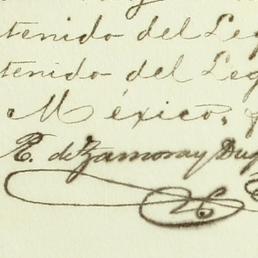 tenido del Leg
tenido del Leg
México,
R. de Zamora y Duq